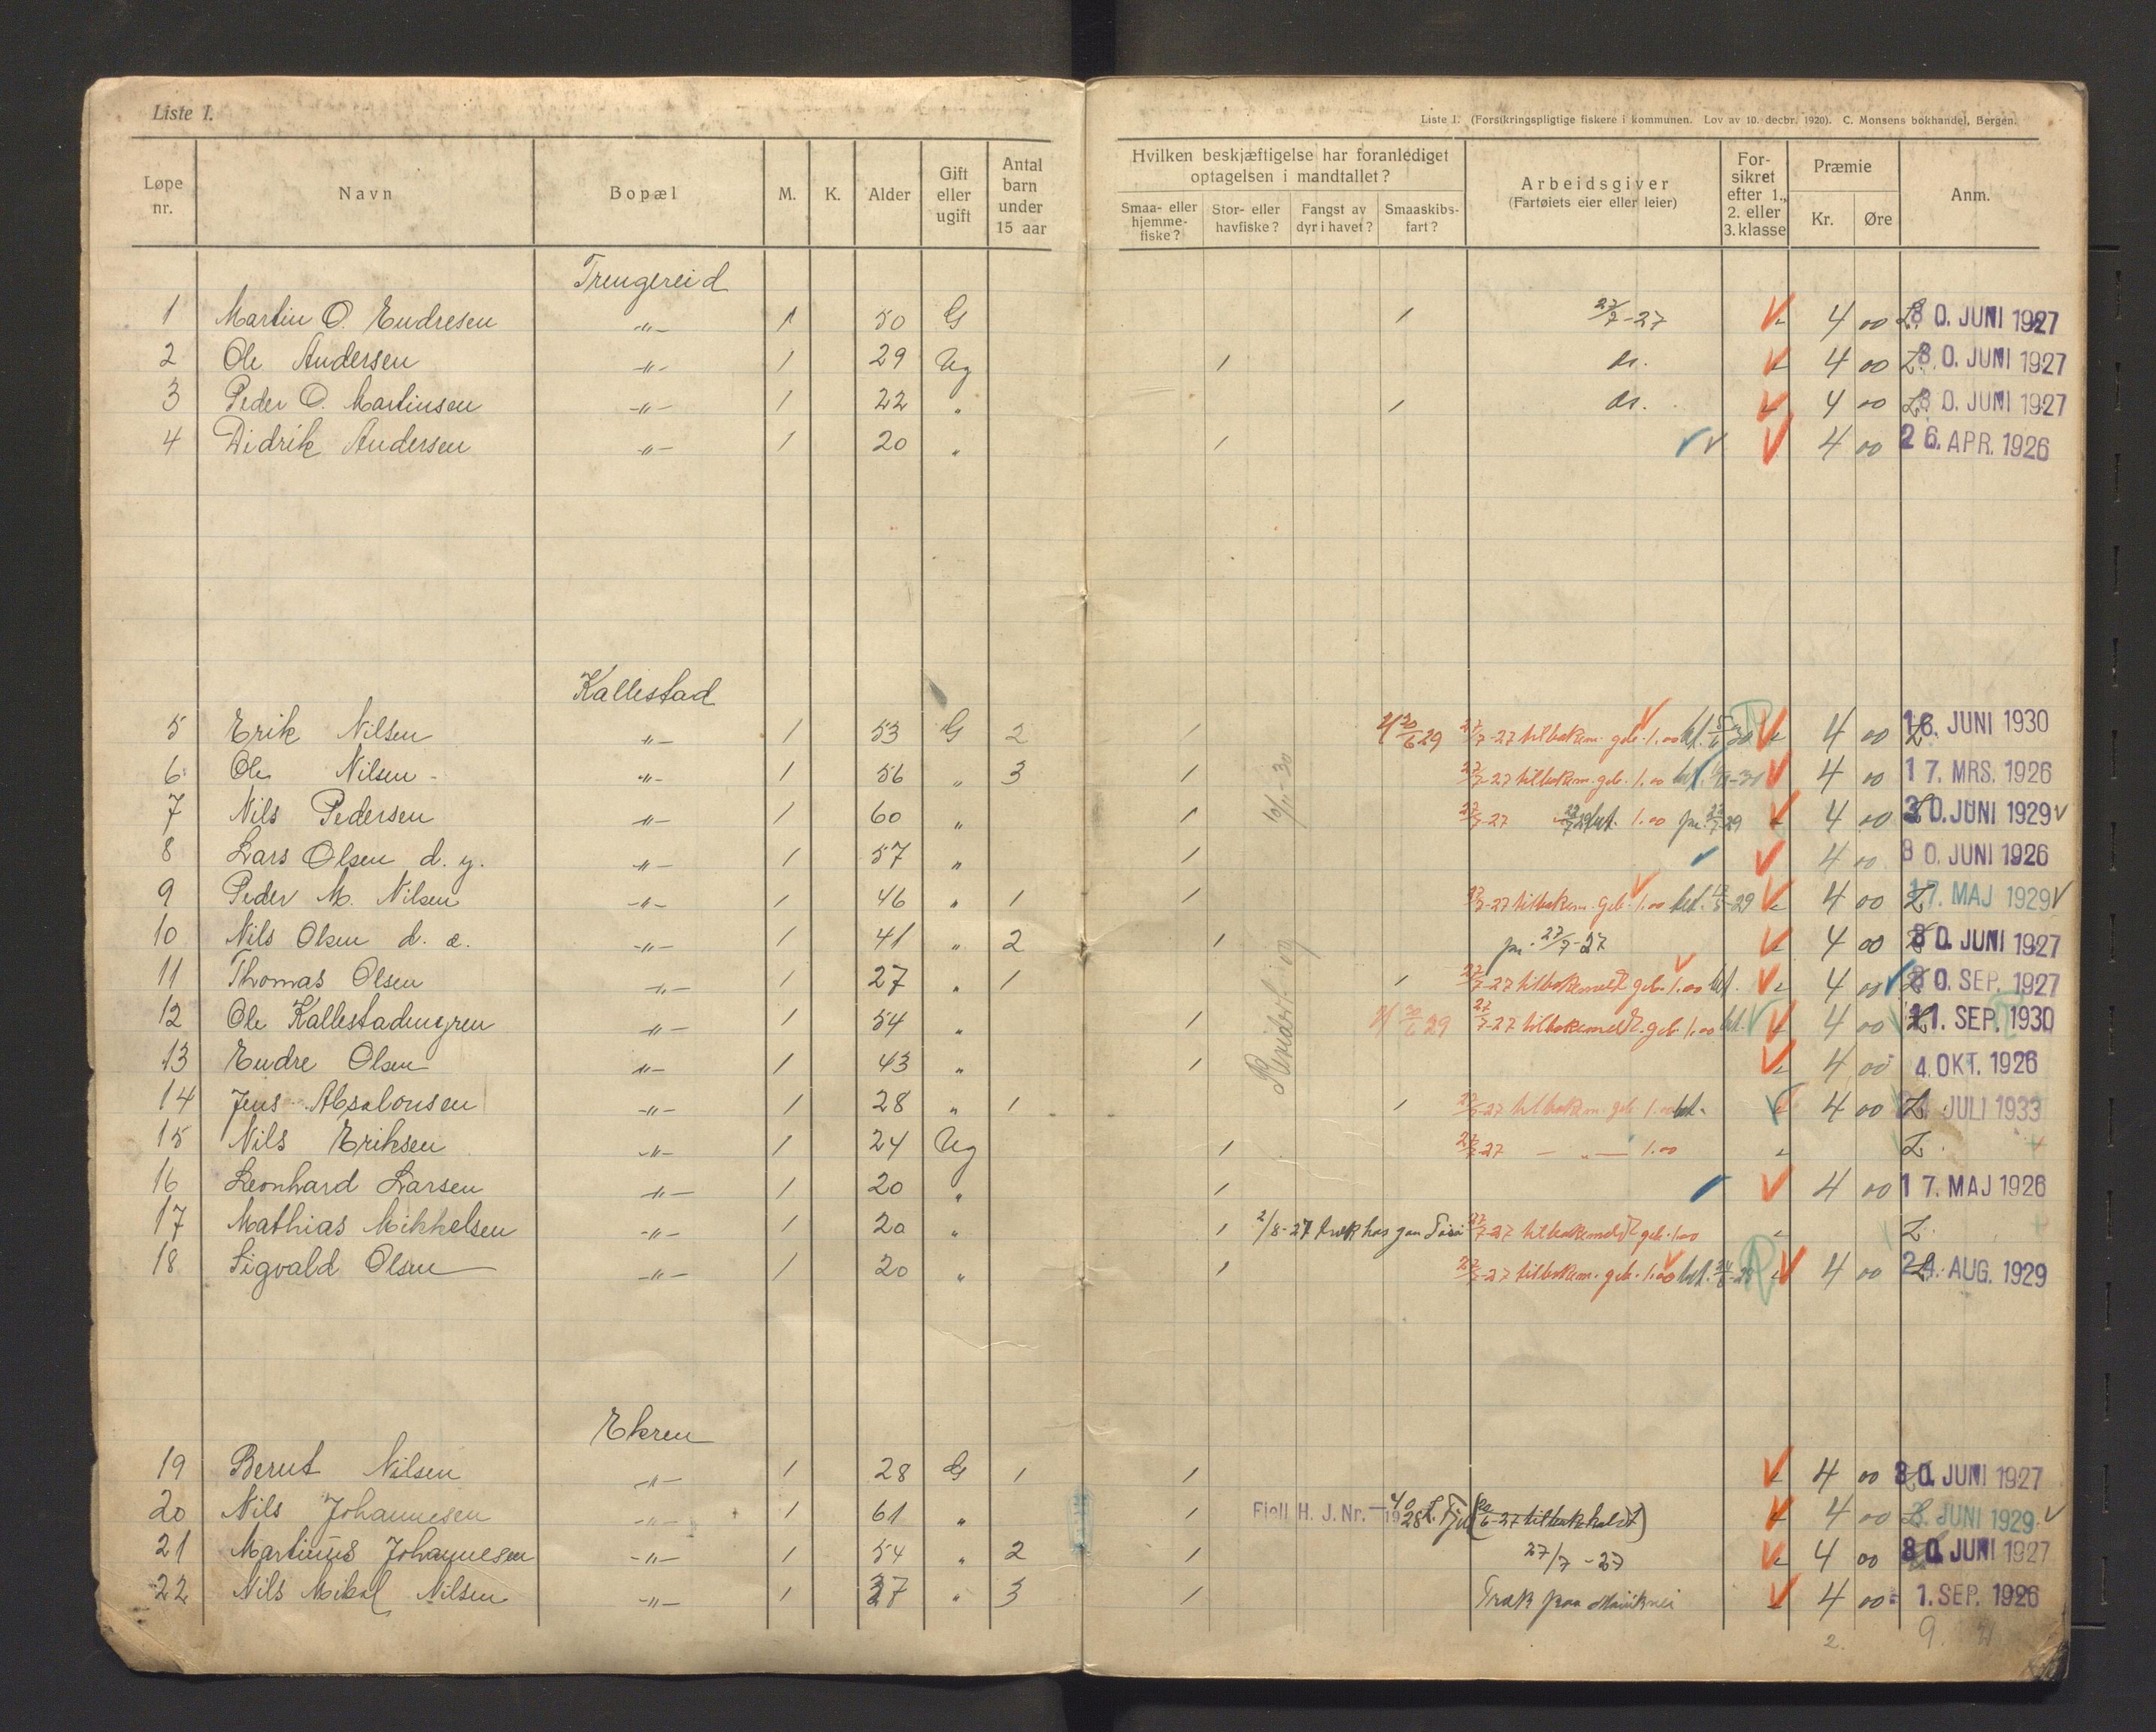 Liste 1.
Liste 1. (Forsikringspligtige fiskere i kommunen. Lov av 10. decbr. 1920). C. Monsens bokhandel, Bergen.
Løpe nr. Navn Bopæl M. K. Alder Gift eller ugift Antal barn under 15 aar
Hvilken beskjæftigelse har foranlediget optagelsen i mandtallet?
Smaa- eller hjemmefiske? Stor- eller havfiske? Fangst av dyr i havet? Smaaskibsfart?
Arbeidsgiver (Fartøiets eier eller leier) Forsikret efter 1., 2. eller 3. klasse Præmie Kr. Øre Anm.
Trengereid
1 Martin O. Endresen -"- 1 50 G 1 27/7-27 4 00 30. JUNI 1927
2 Ole Andersen -"- 1 29 Ug 1 do. 4 00 30. JUNI 1927
3 Peder O. Martinsen -"- 1 22 " 1 do. 4 00 30. JUNI 1927
4 Didrik Andersen -"- 1 20 " 1 4 00 26. APR. 1926
Kallestad
5 Erik Nilsen -"- 1 53 G 2 1 30/6 29 27/7-27 tilbakem. geb. 1.00 bet. 4 00 16. JUNI 1930
6 Ole Nilsen -"- 1 56 " 3 1 27/7-27 tilbakem. geb. 1.00 bet. 4 00 17. MRS. 1926
7 Nils Pedersen -"- 1 60 " 1 27/7-27 bet. 1.00 4 00 30. JUNI 1929
8 Lars Olsen d. y. -"- 1 57 " 1 4 00 30. JUNI 1926
9 Peder M. Nilsen -"- 1 46 " 1 1 27/7-27 tilbakem. geb. 1.00 bet. 4 00 17. MAJ 1929
10 Nils Olsen d. e. -"- 1 41 " 2 1 pr. 27/7-27 4 00 30. JUNI 1927
11 Thomas Olsen -"- 1 27 " 1 1 27/7-27 tilbakemeldt geb. 1.00 bet. 4 00 30. SEP. 1927
12 Ole Kallestadengren -"- 1 54 " 1 30/6 29 27/7-27 tilbakemeldt. geb. 1.00 bet. 4 00 11. SEP. 1930
13 Endre Olsen -"- 1 43 " 1 4 00 4. OKT. 1926
14 Jens Absalonsen -"- 1 28 " 1 1 27/7-27 tilbakem. geb. 1.00 bet. 4 00 JULI 1933
15 Nils Eriksen -"- 1 24 Ug 1 27/7-27 — " — 1.00
16 Leonhard Larsen -"- 1 20 " 1 4 00 17. MAJ 1926
17 Mathias Mikkelsen -"- 1 20 " 1 2/8-27 træk hos 27/7-27 tilbakemeldt geb. 1.00
18 Sigvald Olsen -"- 1 20 " 1 27/7-27 tilbakem. geb. 1.00 bet. 4 00 24. AUG. 1929
10/11-30
Ekren
19 Bernt Nilsen -"- 1 28 G 1 1 4 00 30. JUNI 1927
20 Nils Johannesen -"- 1 61 " 1 Fjell H. J. Nr. 40 1928 4 00 JUNI 1929
21 Martinus Johannesen -"- 1 54 " 2 1 27/7-27 4 00 30. JUNI 1927
22 Nils Mikal Nilsen -"- 1 37 " 3 1 Træk paa 4 00 1. SEP. 1926
2. 9.